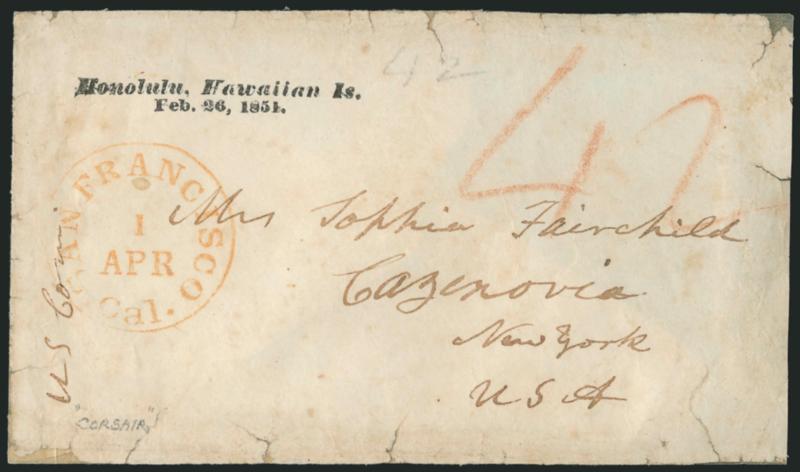 Honolulu, Hawaiian Is.
Feb. 26, 1851.
42
42
SAN FRANCISCO
1
APR
Cal.
Mrs Sophia Fairchild
Cazenovia
New York
USA
US Com.
"CORSAIR"